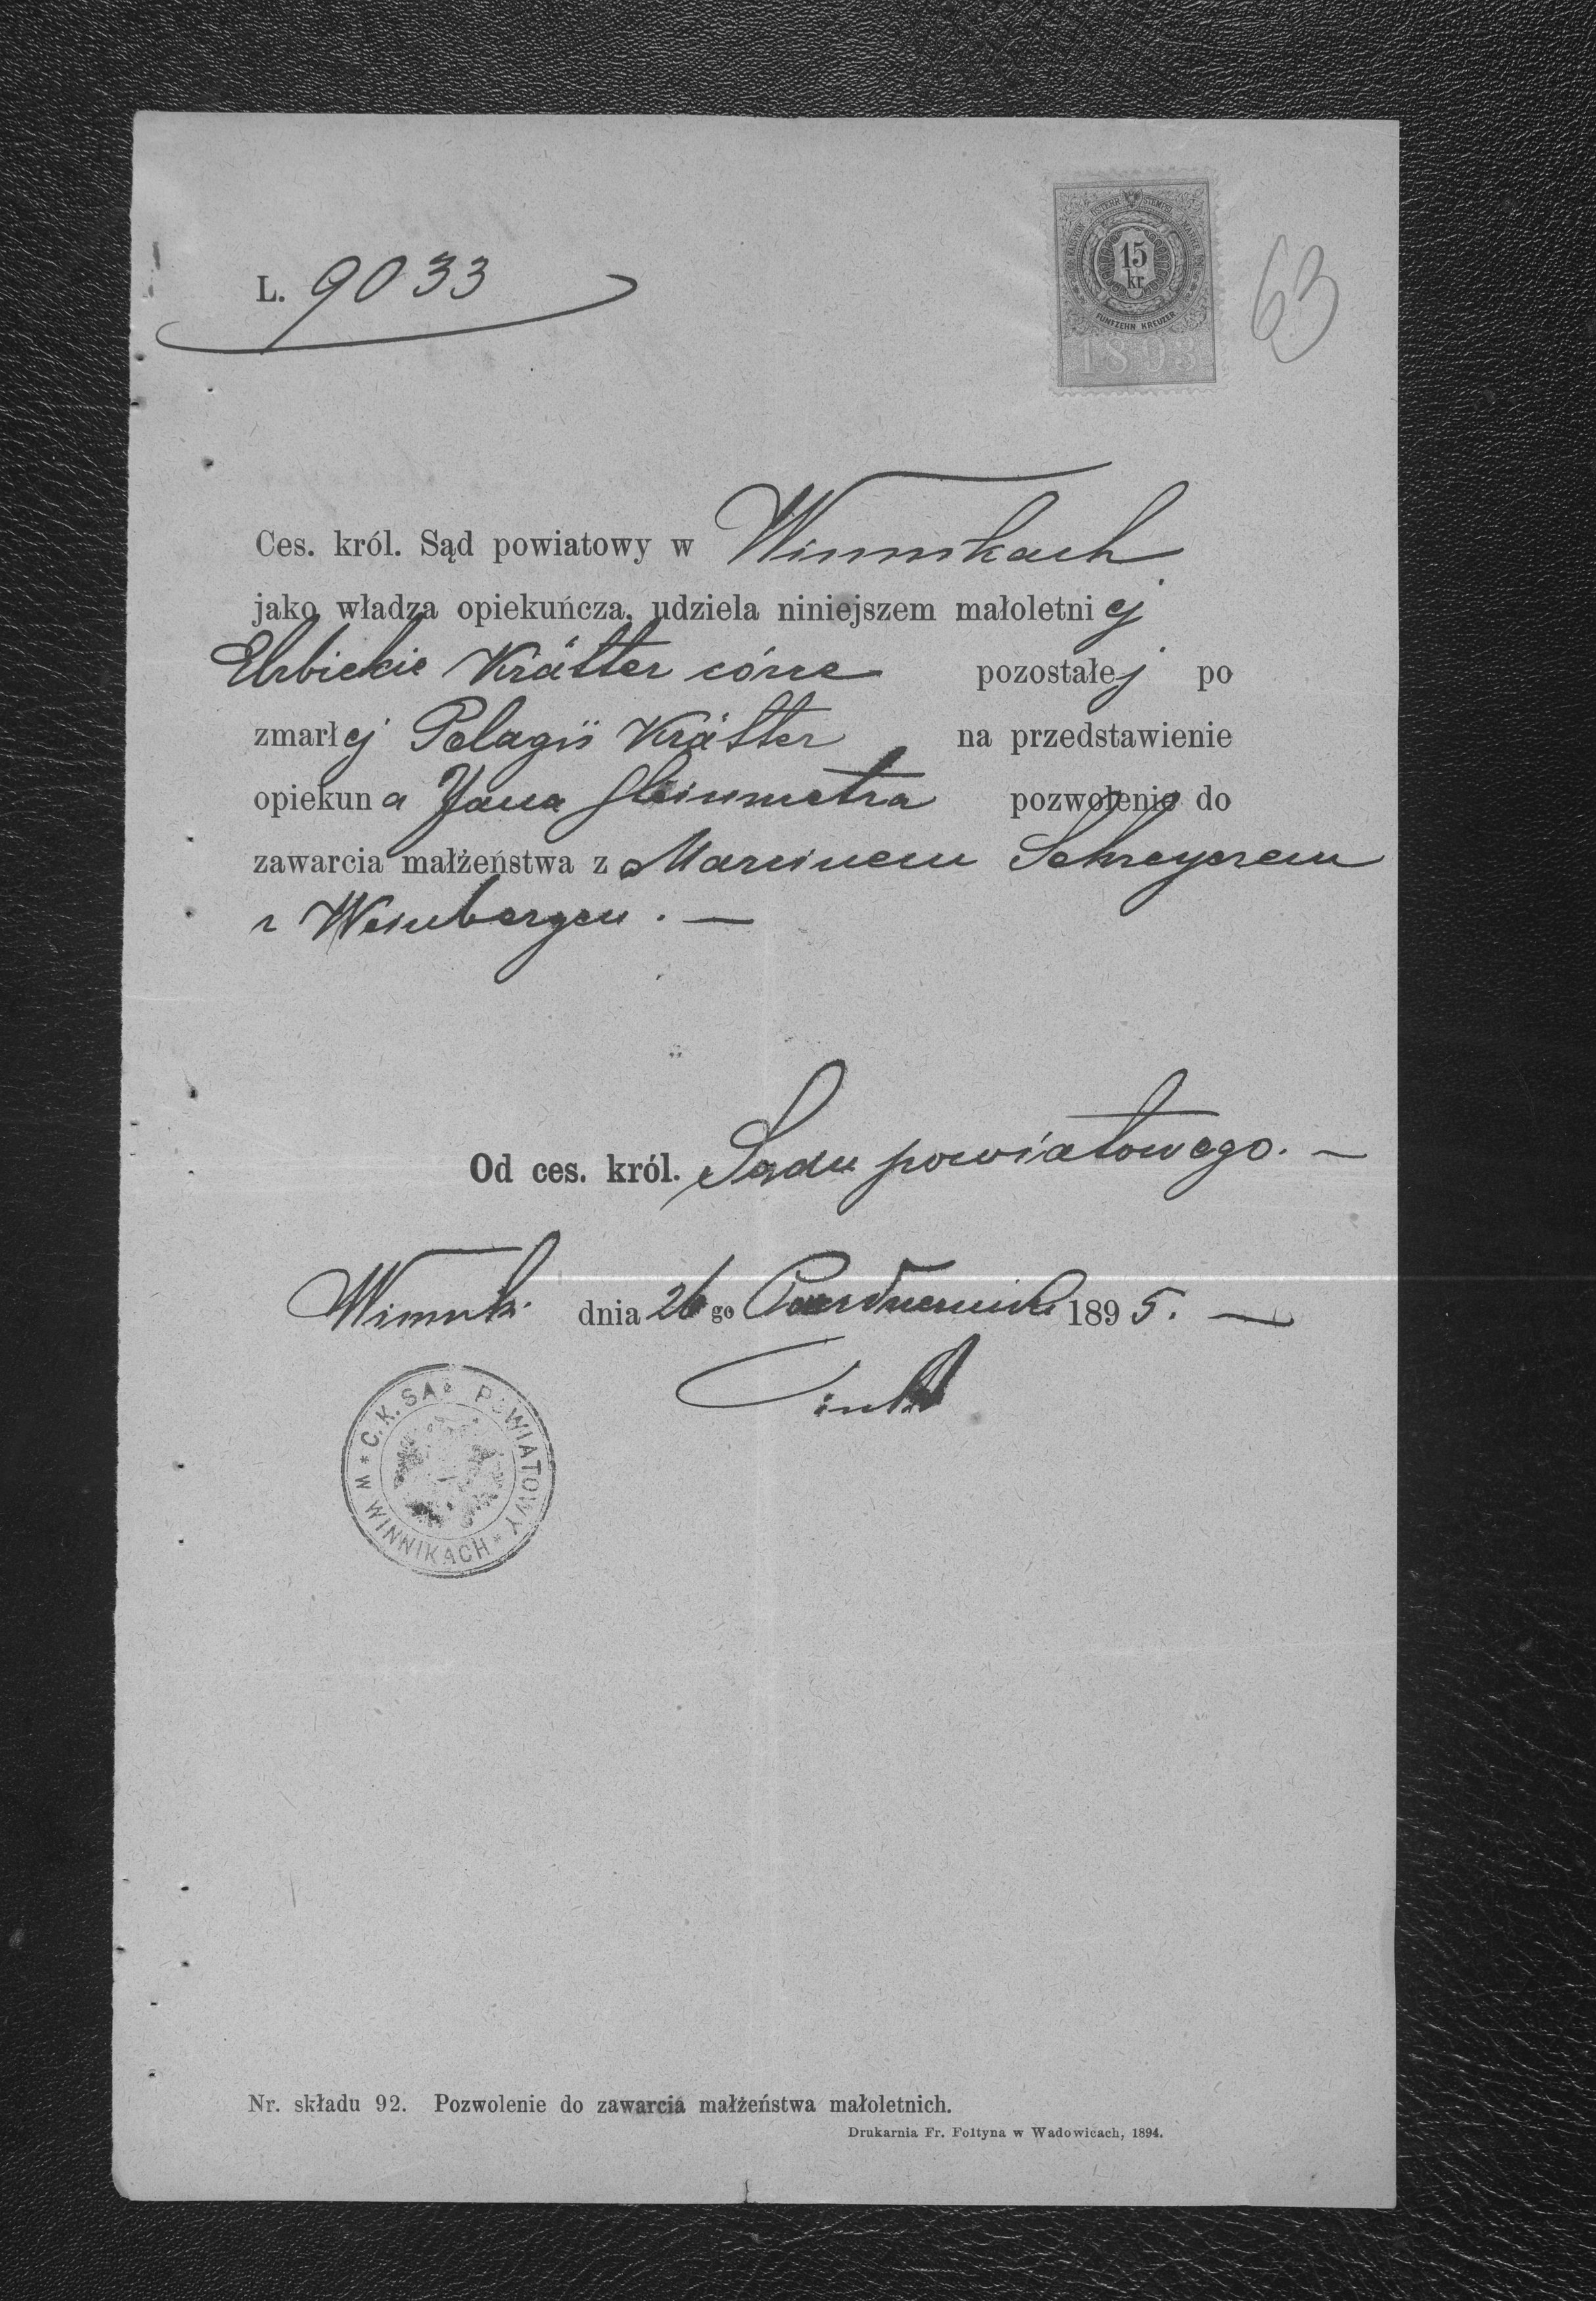 L. 9033
ÖSTERR. STEMPEL MARKE
15
kr
FÜNFZEHN KREUZER
1893
63
Ces. król. Sąd powiatowy w Winnikach
jako władza opiekuńcza, udziela niniejszem małoletniej
Elżbiekie Krätter córce pozostałej po
zmarłej Pelagii Krätter na przedstawienie
opiekuna Jana Steinmetza pozwolenie do
zawarcia małżeństwa z Marcinem Schreyerem
z Weinbergen. —
Od ces. król. Sądu powiatowego. —
Winniki dnia 26 go Października 1895. —
C. K. SĄD POWIATOWY
W WINNIKACH
Nr. składu 92. Pozwolenie do zawarcia małżeństwa małoletnich.
Drukarnia Fr. Foltyna w Wadowicach, 1894.